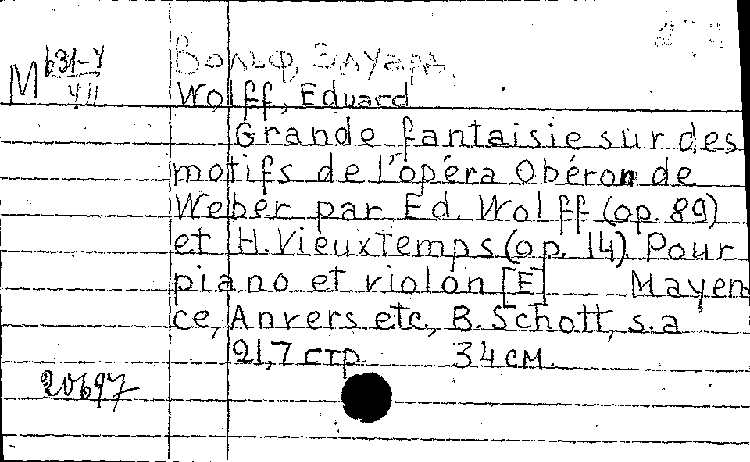 М 631-4/411
Вольф, Эдуард.
Wolff, Eduard
Grande fantaisie sur des
motifs de l'opéra Obéron de
Weber par Ed. Wolff (op. 89)
et H. Vieuxtemps (op. 14) Pour
piano et violon [E] Mayen
ce, Anvers etc, B. Schott, s. a
21,7 стр. 34 см.
20697